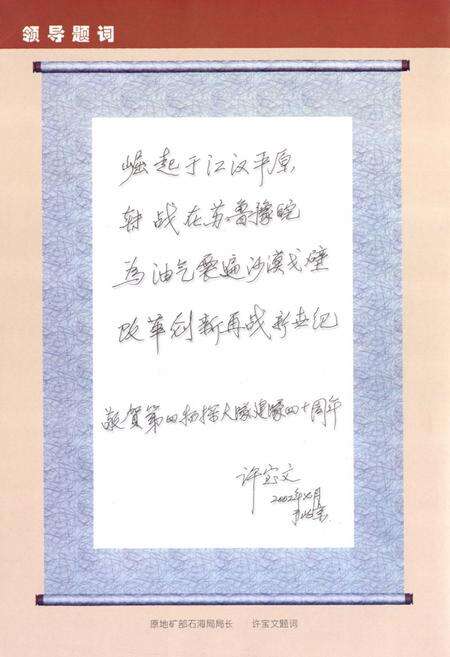 领导题词
崛起于江汉平原,
转战在苏鲁豫皖
为油气震遍沙漠戈壁
改革创新再战新世纪
敬贺第四物探大队建队四十周年
许宝文
2002年
原地矿部石海局局长 许宝文题词